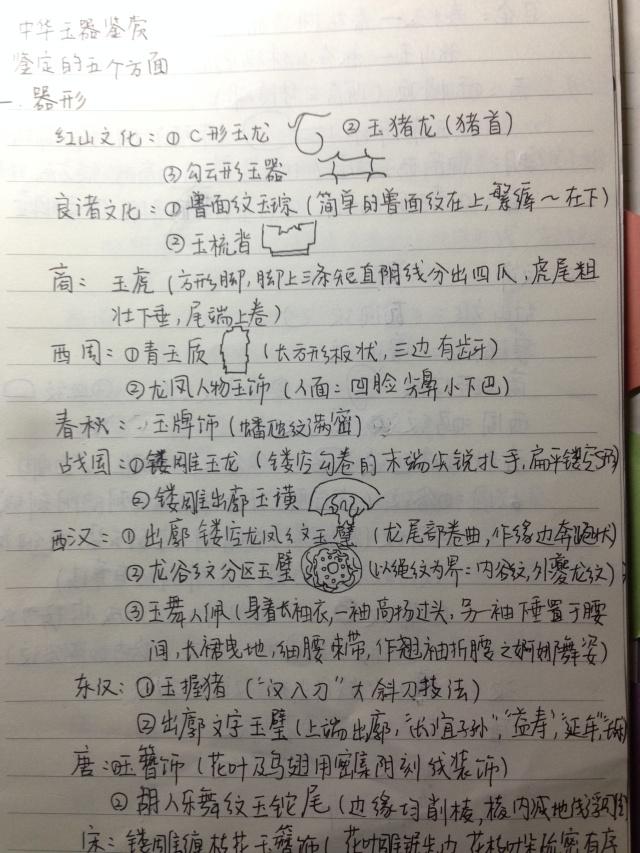 中华玉器鉴赏
鉴定的五个方面
一. 器形
红山文化：① C形玉龙 ② 玉猪龙（猪首）
③ 勾云形玉器
良诸文化：① 兽面纹玉琮（简单的兽面纹在上，繁缛～在下）
② 玉梳背
商： 玉虎（方形脚，脚上三条短直阴线分出四爪，虎尾粗
壮下垂，尾端上卷）
西周：① 青玉质 （长方形板状，三边有齿牙）
② 龙凤人物玉饰（人面：凹脸尖鼻小下巴）
春秋： 玉牌饰（蟠虺纹满密）
战国：① 镂雕玉龙（镂空勾卷的末端尖锐扎手，扁平镂空S形）
② 镂雕出廓玉璜
西汉：① 出廓镂空龙凤纹玉璧（龙尾部卷曲，作缘边奔跑状）
② 龙谷纹分区玉璧 （以绳纹为界：内谷纹，外夔龙纹）
③ 玉舞人佩（身着长袖衣，一袖高扬过头，另一袖下垂置于腰
间，长裙曳地，细腰束带，作翘袖折腰之婀娜舞姿）
东汉：① 玉握猪（“汉八刀”大斜刀技法）
② 出廓文字玉璧（上端出廓，“长宜子孙”，“益寿”，“延年”
唐：① 玉簪饰（花叶及鸟翅用密集阴刻线装饰）
② 胡人乐舞纹玉铊尾（边缘均削棱，棱内减地浅浮
宋：镂雕缠枝花玉簪饰（花叶雕